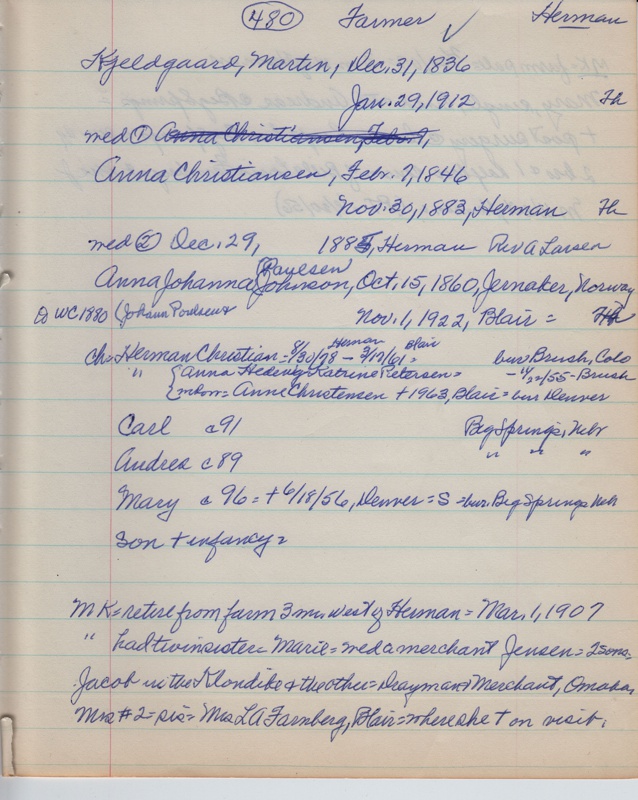 480 Farmer ✓ Herman
Kjeldgaard, Martin, Dec. 31, 1836
Jan. 29, 1912 Fh
med ① Anna Christiansen, Febr. 7,
Anna Christiansen, Febr. 7, 1846
Nov. 30, 1883, Herman Fh
med ② Dec. 29, 1885, Herman Rev A Larsen
(Paulsen)
Anna Johanna Johnson, Oct. 15, 1860, Jernaker, Norway
WC 1880 (Johann Poulsen & Nov. 1, 1922, Blair = Fh
Herman Blair
ch = Herman Christian = 8/30/78 – 2/17/61 = bur Brush, Colo
" { Anna Hedwig Katrine Petersen = – 4/22/55 – Brush
{ mbom = Anne Christensen + 1963, Blair = bur Denver
Carl c 91 Big Springs, Nebr
Andrea c 89 " " "
Mary c 96 = + 6/18/56, Denver = S = bur. Big Springs Neb
Son + infancy =
MK = retire from farm 3 m west of Herman = Mar. 1, 1907
" had twin sister = Marie = med a merchant Jensen = 2 sons =
Jacob in the Klondike & the other = Drayman & Merchant, Omaha,
Mrs #2 = sis = Mrs L A Farnberg, Blair = where she + on visit.